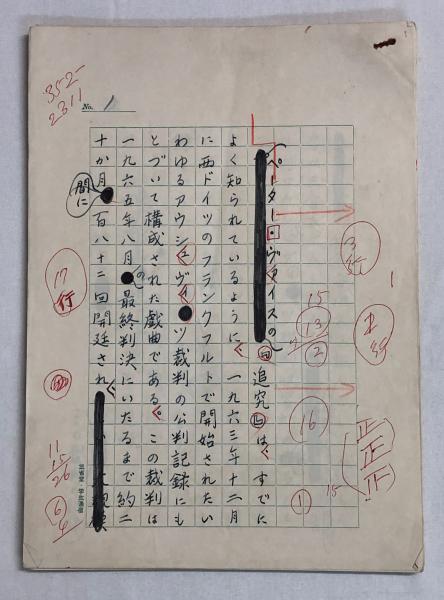 352-
2311
No. 1
ペーター・ヴァイスの
「追究」は、すでに
よく知られているように、一九六三年十二月
に西ドイツのフランクフルトで開始されたい
わゆるアウシュヴィッツ裁判の公判記録にも
とづいて構成された戯曲である。この裁判は
一九六五年八月の最終判決にいたるまで約二
十か月間に百八十二回開廷され、
3行
15
13
2
2行
16
1
正正正
15
17行
11
15
26
6